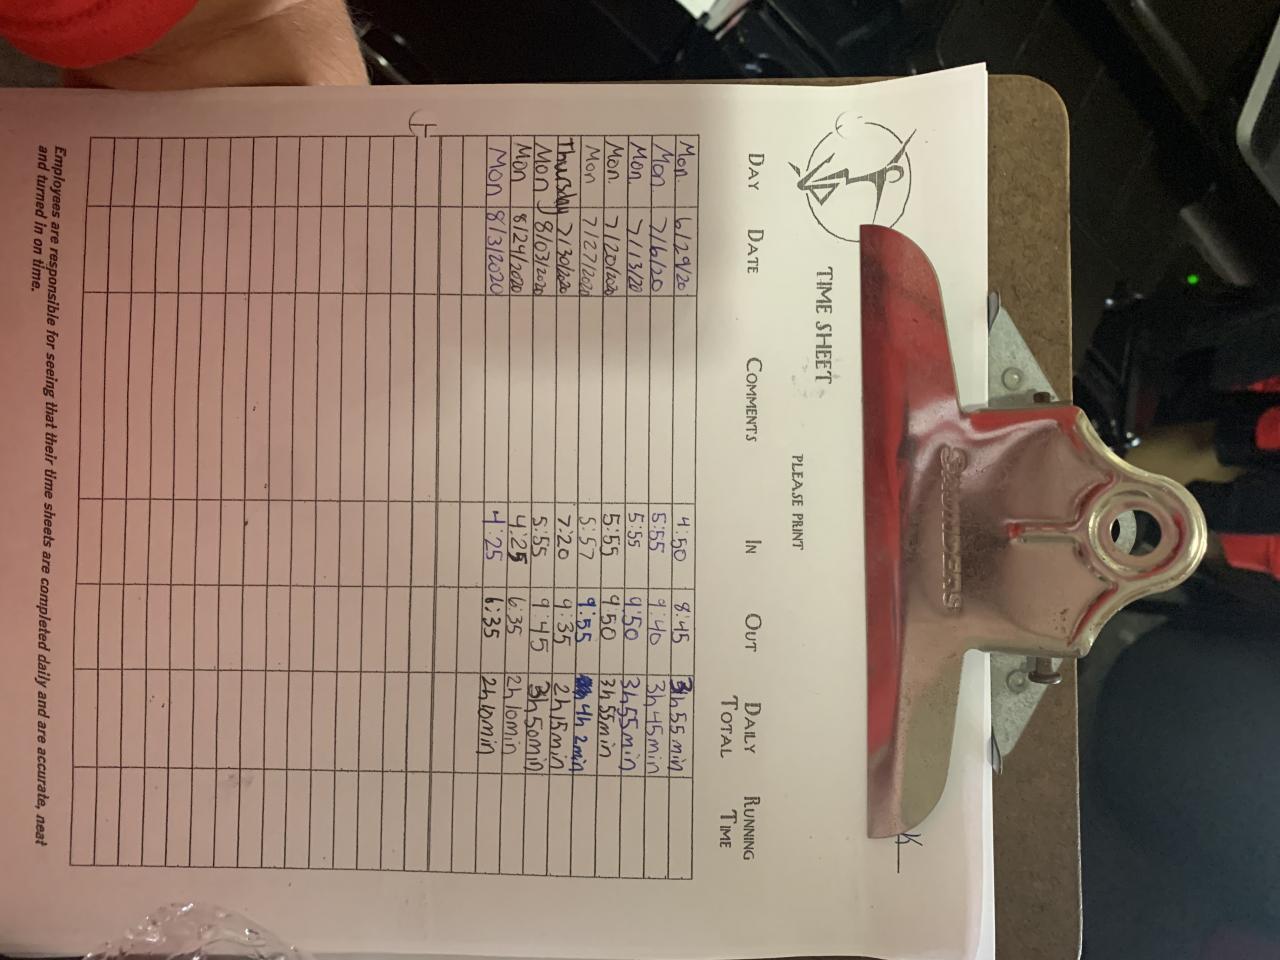 SAUNDERS
TIME SHEET
PLEASE PRINT
DAY DATE COMMENTS IN OUT DAILY TOTAL RUNNING TIME
Mon. 6/29/20 4:50 8:45 3h 55min
Mon 7/6/20 5:55 9:40 3h 45min
Mon. 7/13/20 5:55 9:50 3h 55min
Mon. 7/20/2020 5:55 9:50 3h 55min
Mon 7/27/2020 5:57 9:55 4h 2min
Thursday 7/30/2020 7:20 9:35 2h 15min
Mon 8/03/2020 5:55 9:45 3h 50min
Mon 8/24/2020 4:25 6:35 2h 10min
Mon 8/3/2020 4:25 6:35 2h 10min
Employees are responsible for seeing that their time sheets are completed daily and are accurate, neat
and turned in on time.